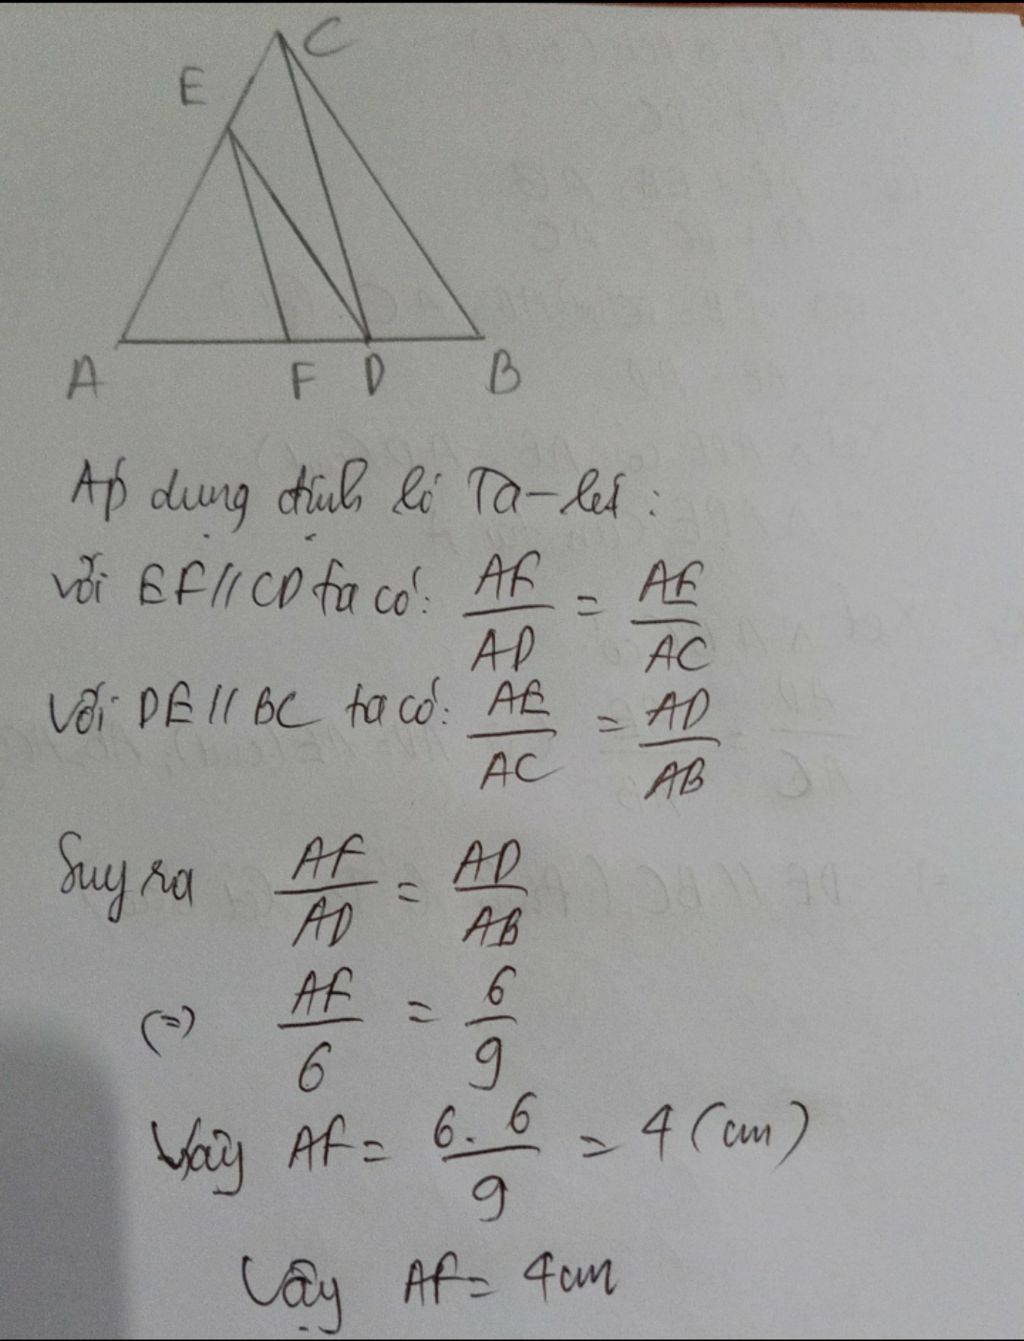 C
E
A F D B
Áp dụng định lí Ta-let:
Với EF//CD ta có: AF/AD = AE/AC
Với DE//BC ta có: AE/AC = AD/AB
Suy ra AF/AD = AD/AB
(=) AF/6 = 6/9
Vậy AF = 6.6/9 = 4 (cm)
Vậy AF = 4cm